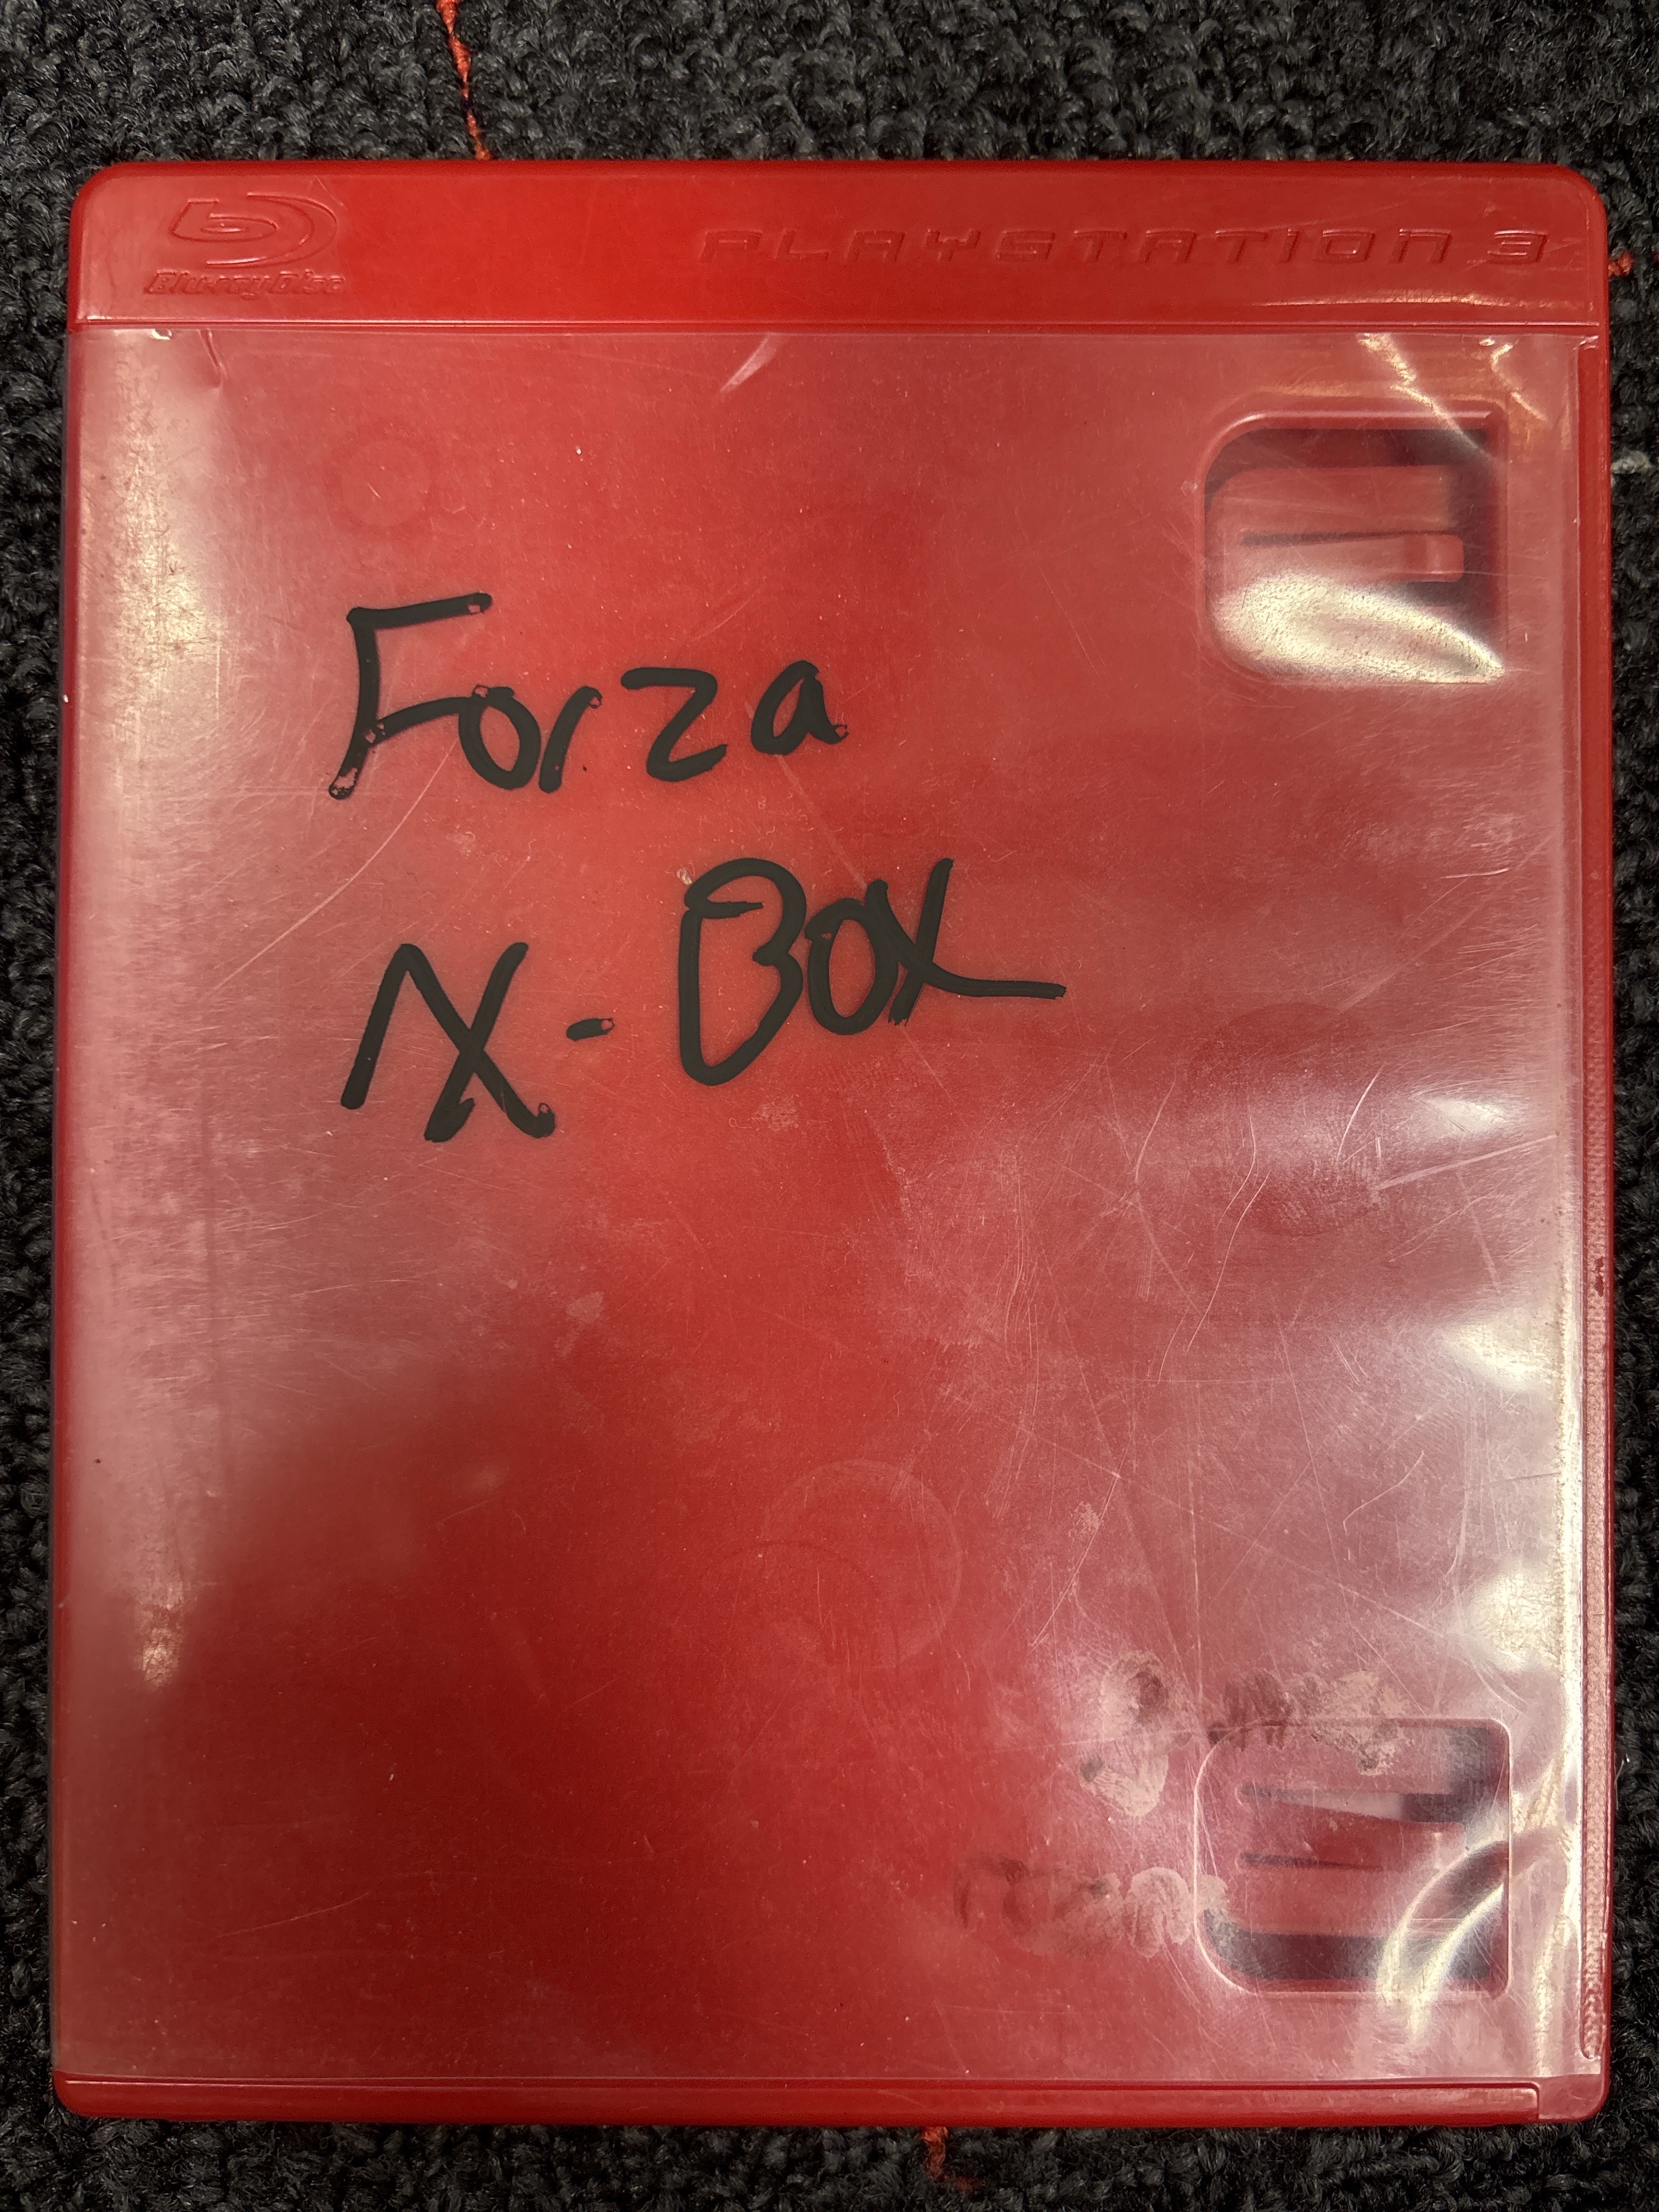 Blu-ray Disc
PLAYSTATION 3
Forza
X-Box